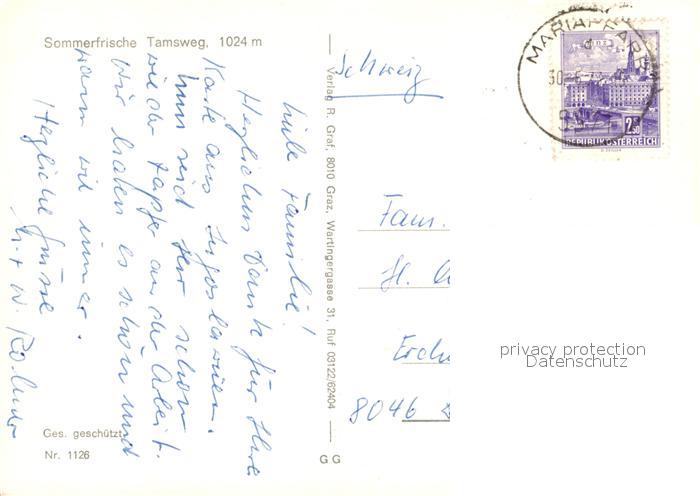 Sommerfrische Tamsweg, 1024 m
Liebe Familie!
Herzlichen Dank für Ihre
Karte aus Jugoslawien.
Nun seid Ihr schon
wieder tapfer an der Arbeit.
Wir haben es schön und
warm wie immer.
Herzliche Grüsse
+ W.
Ges. geschützt
Nr. 1126
Verlag R. Graf, 8010 Graz, Wartingergasse 31, Ruf 03122/62404
G G
Schweiz
Fam.
H.
8046
MARIAPFARR
LINZ
2.50
REPUBLIK ÖSTERREICH
privacy protection
Datenschutz